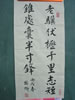 老驥伏櫪千里志短
錐處囊半寸鋒